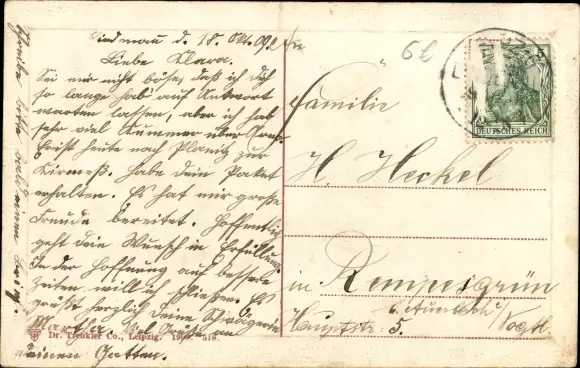 Lindenau d. 18. Okt. 09.
Liebe Klara.
Sei mir nicht böse, daß ich Dich
so lange hab' auf Antwort
warten lassen, aber ich hab
sehr viel Kummer über
heute nach Planitz zur
Kirmeß. Habe dein Paket
erhalten. Es hat mir große
Freude bereitet. Hoffentlich
geht dein Wunsch in Erfüllung.
In der Hoffnung auf bessere
Zeiten will ich schließen. Es
grüßt herzlich deine Schwägerin
Martha. Viel Grüße an
deinen Gatten.
Schreibe bitte
Dr. Trenkler Co., Leipzig. 1905. 518.
6
DEUTSCHES REICH
5
Familie
H. Heckel
in Rempesgrün
b. Auerbach i/
Hauptstr. 5. Vogtl.